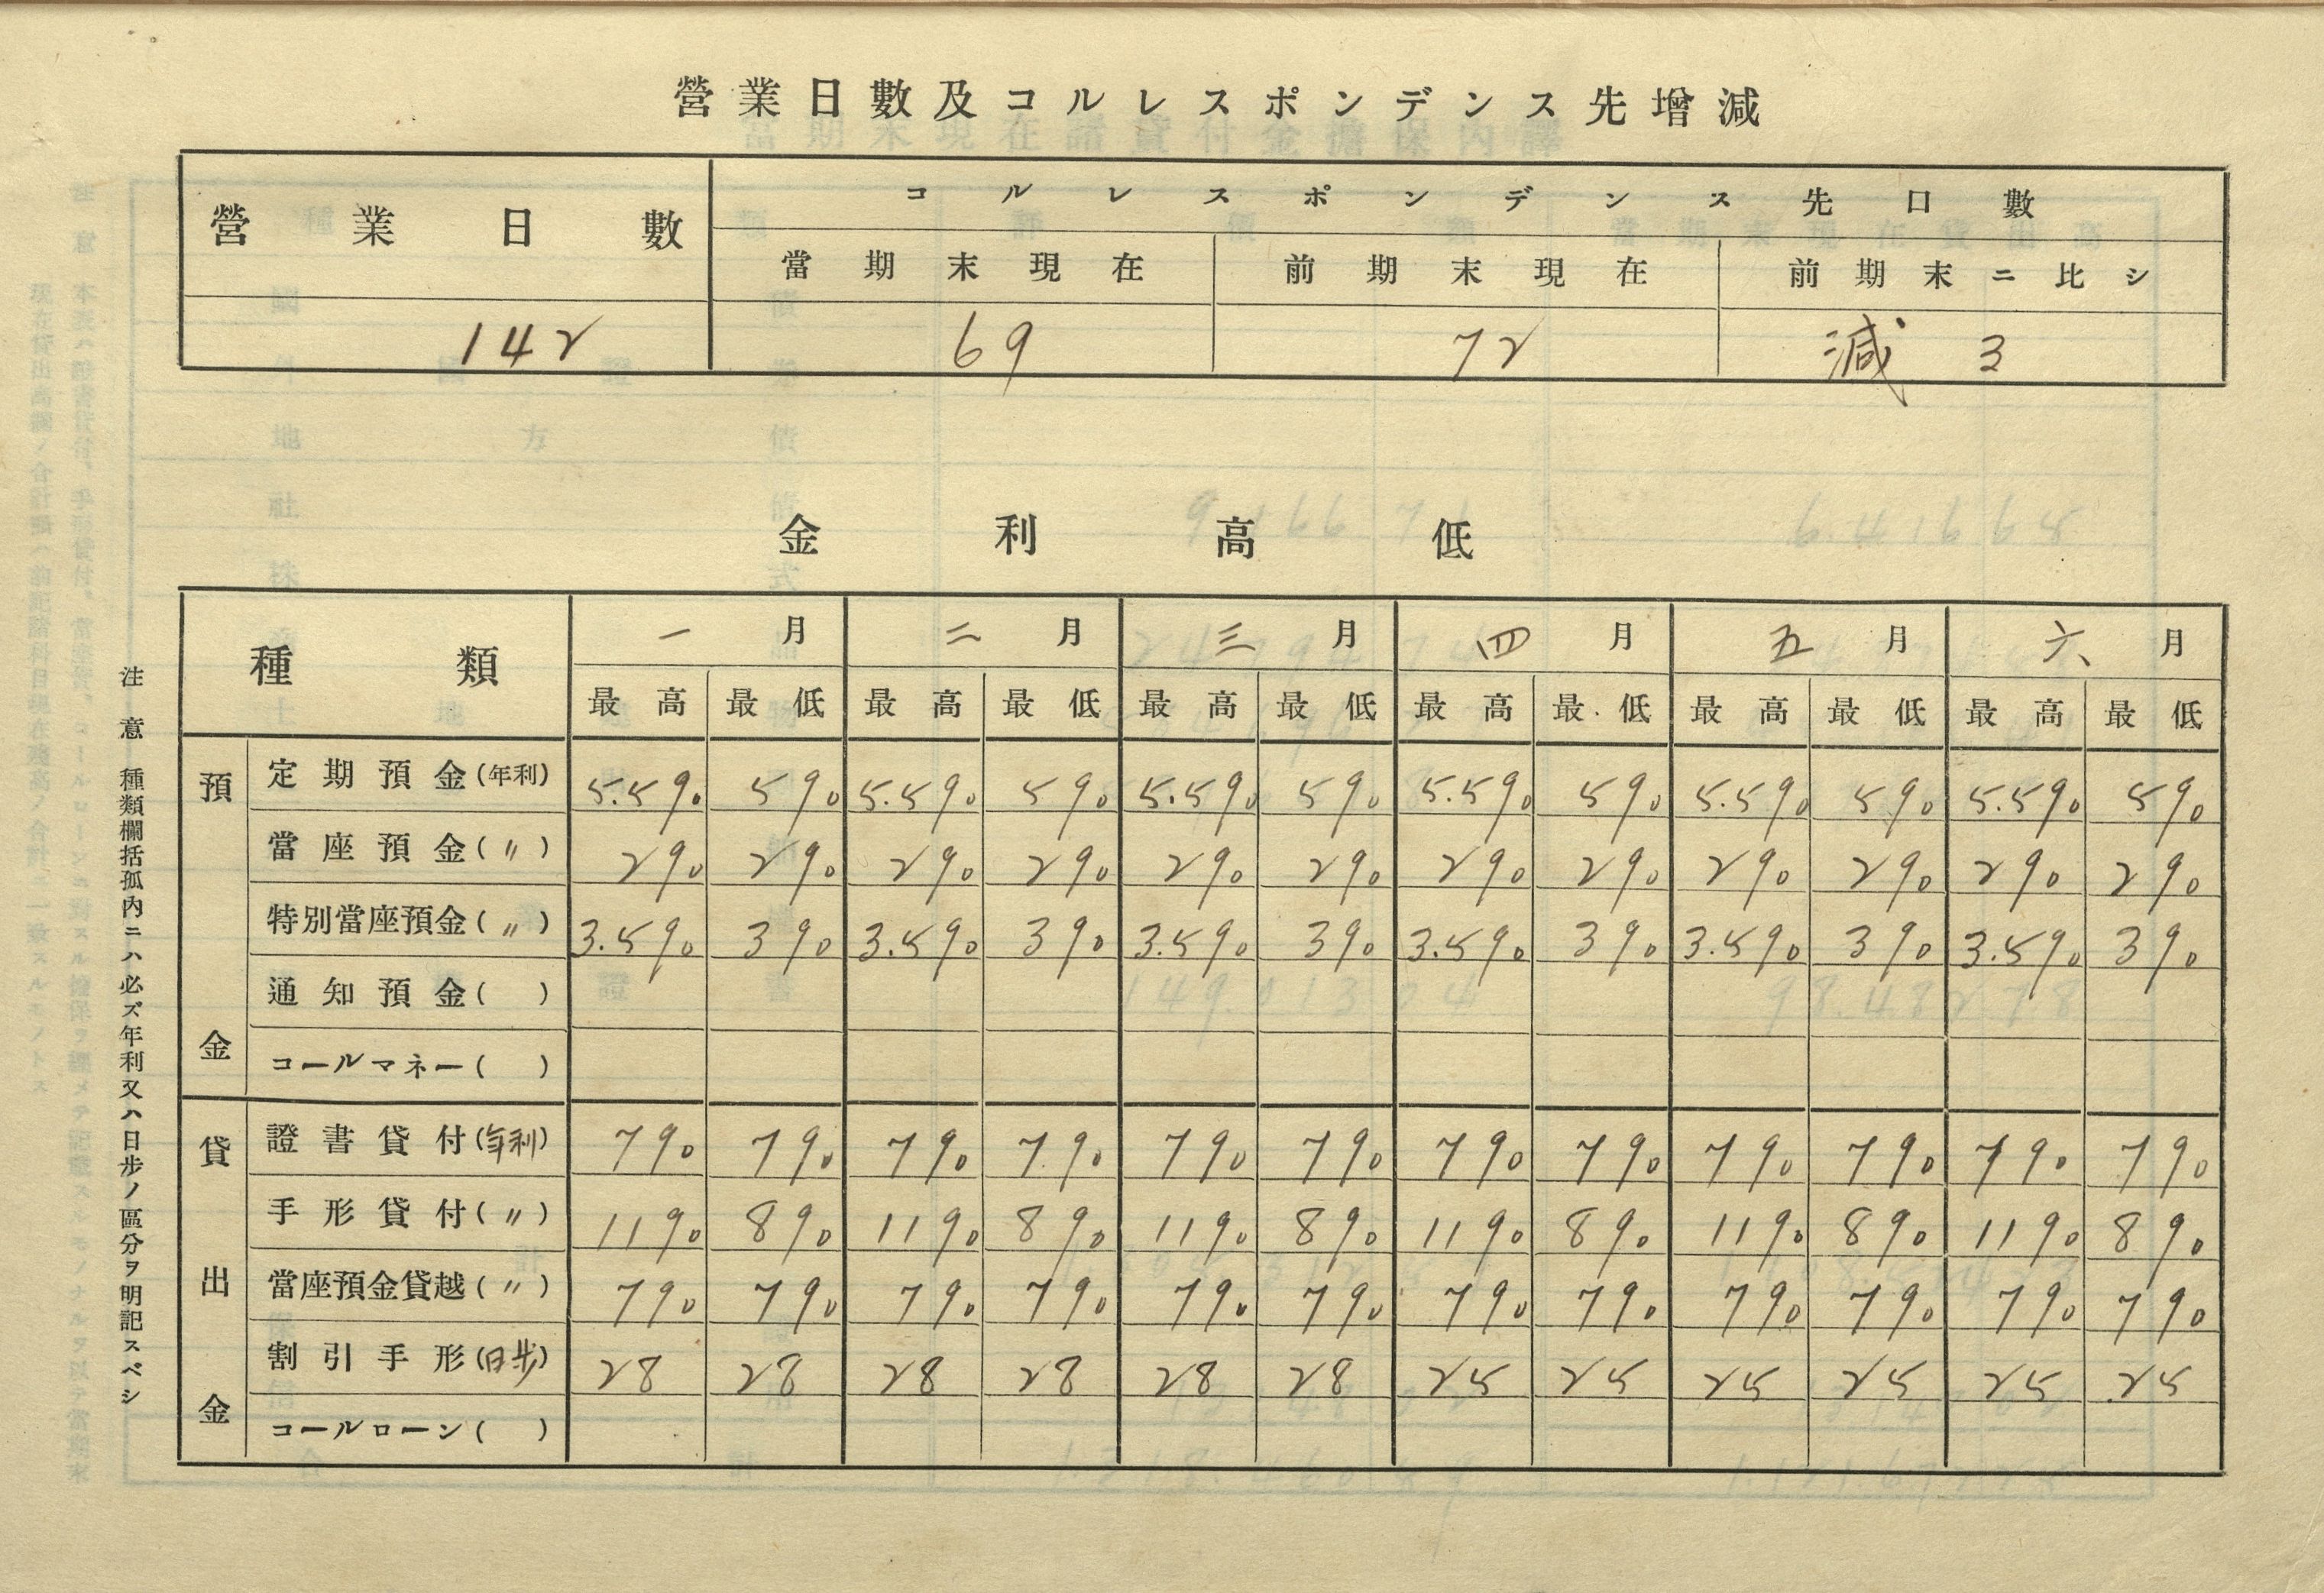 營業日數及コルレスポンデンス先增減
營業日數 コルレスポンデンス先口數
當期末現在 前期末現在 前期末ニ比シ
142 69 72 減 3
金利高低
種類 一月 二月 三月 四月 五月 六月
最高 最低 最高 最低 最高 最低 最高 最低 最高 最低 最高 最低
預金
定期預金(年利) 5.5% 5% 5.5% 5% 5.5% 5% 5.5% 5% 5.5% 5% 5.5% 5%
當座預金(〃) 2% 2% 2% 2% 2% 2% 2% 2% 2% 2% 2% 2%
特別當座預金(〃) 3.5% 3% 3.5% 3% 3.5% 3% 3.5% 3% 3.5% 3% 3.5% 3%
通知預金( )
コールマネー( )
貸出金
證書貸付(年利) 7% 7% 7% 7% 7% 7% 7% 7% 7% 7% 7% 7%
手形貸付(〃) 11% 8% 11% 8% 11% 8% 11% 8% 11% 8% 11% 8%
當座預金貸越(〃) 7% 7% 7% 7% 7% 7% 7% 7% 7% 7% 7% 7%
割引手形(日步) 28 28 28 28 28 28 25 25 25 25 25 25
コールローン( )
注意 種類欄括孤內ニハ必ズ年利又ハ日步ノ區分ヲ明記スベシ